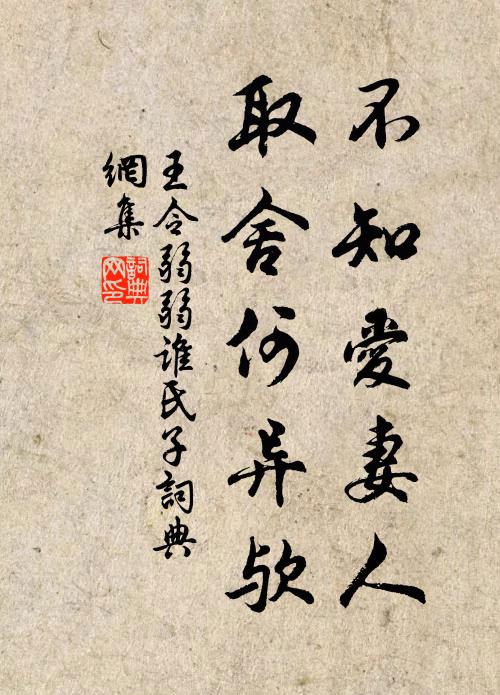 不知愛妻人
取舍何异欤
王令弱弱谁氏子詞典
網集
詞典網印